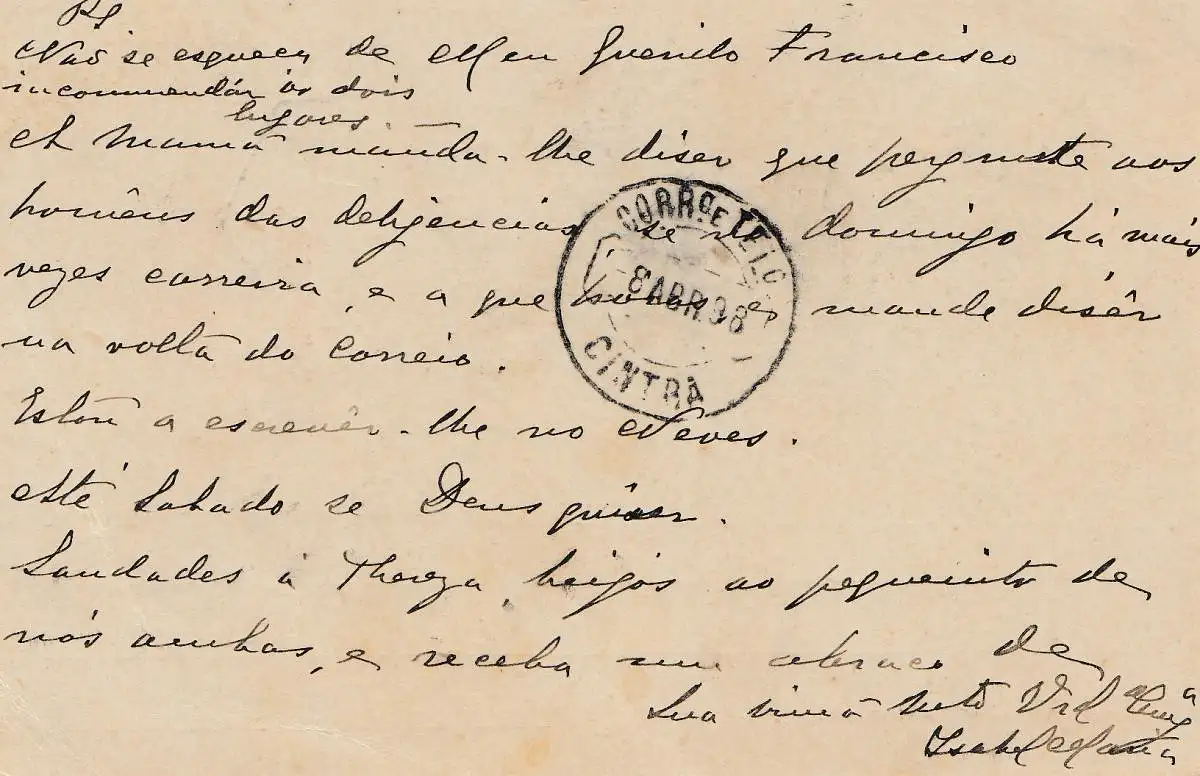 Não se esqueça de
Meu Querido Francisco
incommendár os dois
lugares.
A Mamã manda-lhe diser que pergunte aos
homêns das deligencias se no domingo há mais
vezes carreira, e a que horas, e mande disêr
na volta do Correio.
Estou a escrevêr-lhe no Neves.
Até Sabado se Deus quiser.
Saudades á Thereza, beijos ao pequenito de
nós ambas, e receba um abraço de
Sua irmã Mto Amiga
Isabel Maria
CORRO E TELO
8 ABR. 98
CINTRA